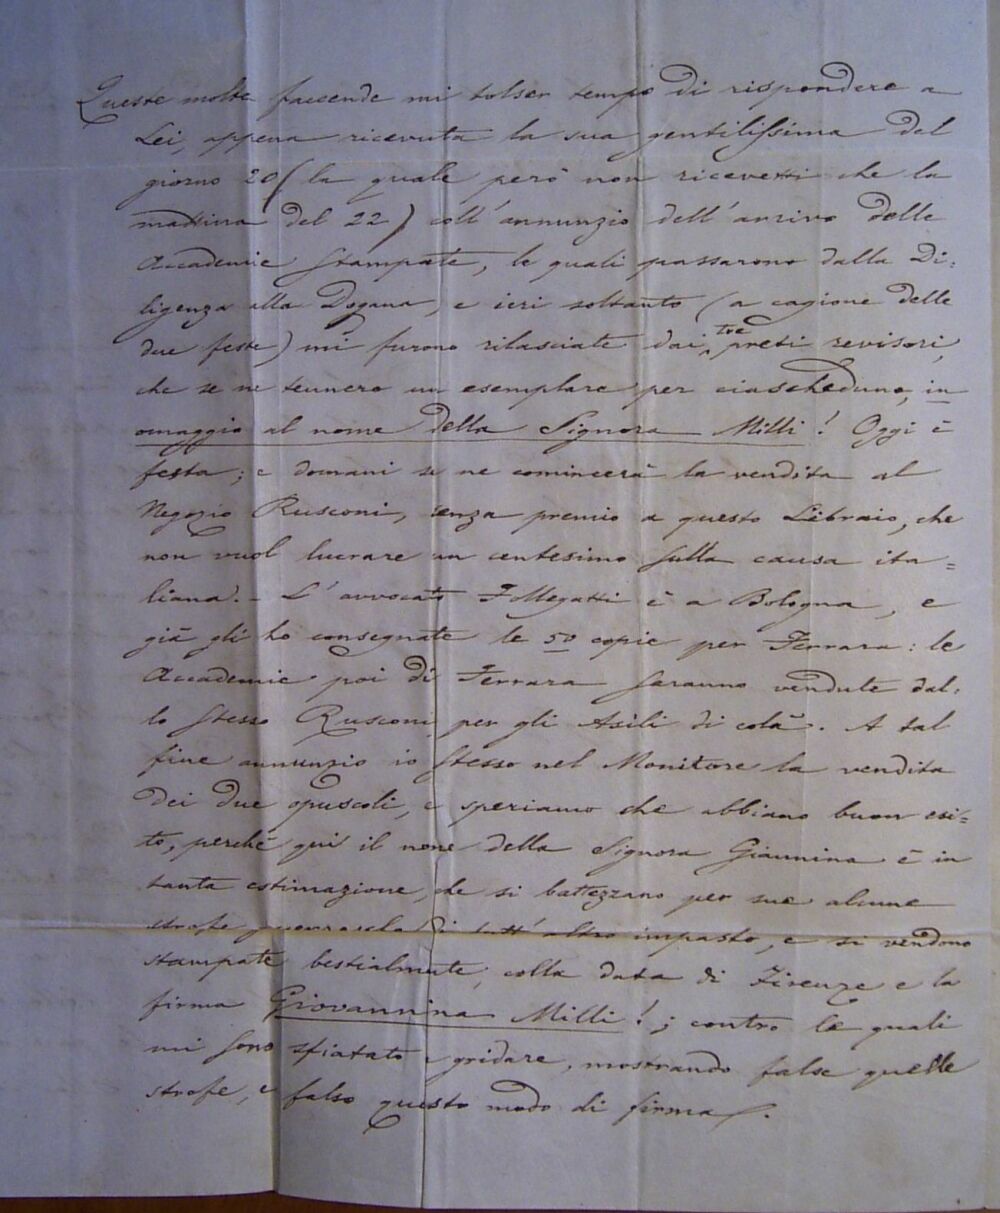 Queste molte faccende mi tolser tempo di rispondere a
Lei, appena ricevuta la sua gentilissima del
giorno 20 (la quale però non ricevetti che la
mattina del 22) coll'annunzio dell'arrivo delle
Accademie stampate, le quali passarono dalla Di:
ligenza alla Dogana, e ieri soltanto (a cagione delle
due feste) mi furono rilasciate dai tre preti revisori,
che se ne tennero un esemplare per ciascheduno, in
omaggio al nome della Signora Milli! Oggi è
festa; e domani se ne comincerà la vendita al
Negozio Rusconi, senza premio a questo Librajo, che
non vuol lucrare un centesimo sulla causa ita=
liana. - L'avvocato Follegatti è a Bologna, e
già gli ho consegnate le 50 copie per Ferrara: le
Accademie poi di Ferrara saranno vendute dal:
lo stesso Rusconi per gli Asili di colà. A tal
fine annunzio io stesso nel Monitore la vendita
dei due opuscoli, e speriamo che abbiano buon esi=
to, perchè qui il nome della Signora Giannina è in
tanta estimazione, che si battezzano per sue alcune
strofe di tutt'altro impasto, e si vendono
stampate bestialmente, colla data di Firenze e la
firma Giovannina Milli!; contro le quali
mi sono sfiatato a gridare, mostrando false quelle
strofe, e falso questo modo di firmars.